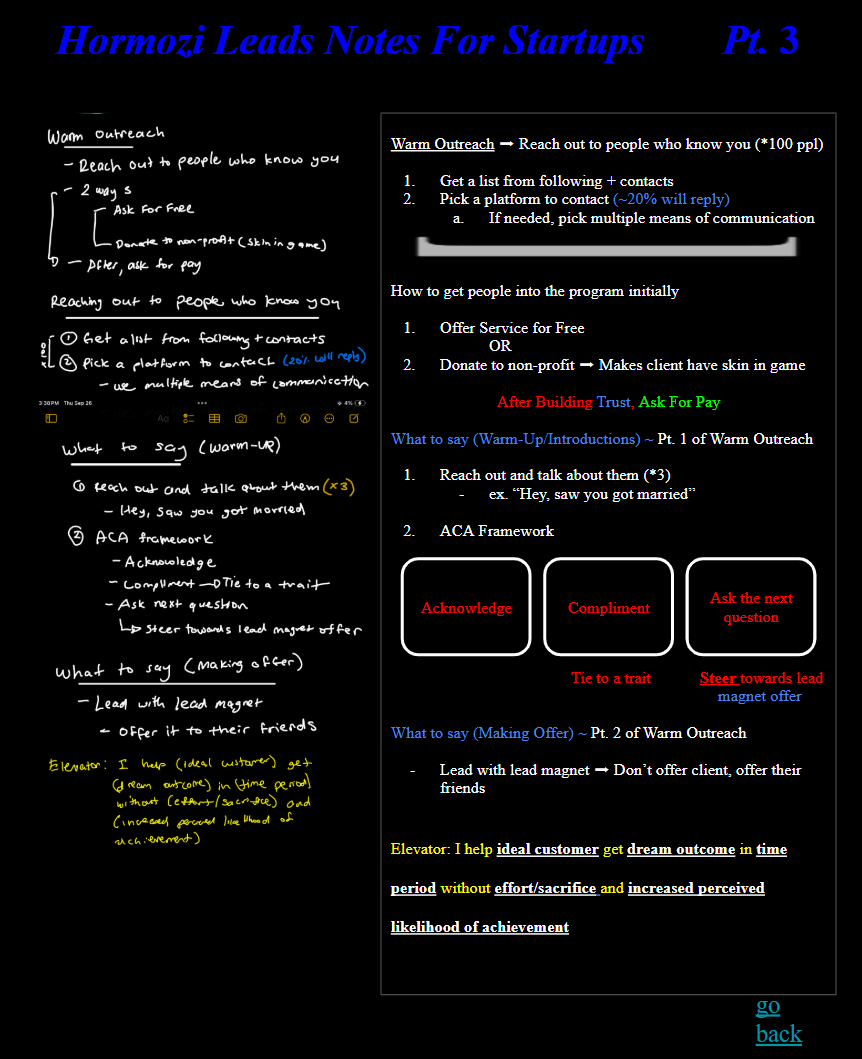 Hormozi Leads Notes For Startups Pt. 3
Warm outreach
- Reach out to people who know you
- 2 ways
Ask For Free
Donate to non-profit (skin in game)
- After, ask for pay
Reaching out to people who know you
x100
① Get a list from following + contacts
② Pick a platform to contact (20% will reply)
- use multiple means of communication
3:38 PM Thu Sep 26
4%
Aa
What to say (Warm-UP)
① Reach out and talk about them (x3)
- Hey, saw you got married
② ACA framework
- Acknowledge
- Compliment → Tie to a trait
- Ask next question
↳ Steer towards lead magnet offer
What to say (Making offer)
- Lead with lead magnet
- offer it to their friends
Elevator: I help (ideal customer) get
(dream outcome) in (time period)
without (effort/sacrifice) and
(increased perceived likelihood of
achievement)
Warm Outreach → Reach out to people who know you (*100 ppl)
1. Get a list from following + contacts
2. Pick a platform to contact (~20% will reply)
a. If needed, pick multiple means of communication
How to get people into the program initially
1. Offer Service for Free
OR
2. Donate to non-profit → Makes client have skin in game
After Building Trust, Ask For Pay
What to say (Warm-Up/Introductions) ~ Pt. 1 of Warm Outreach
1. Reach out and talk about them (*3)
- ex. “Hey, saw you got married”
2. ACA Framework
Acknowledge
Compliment
Ask the next
question
Tie to a trait
Steer towards lead
magnet offer
What to say (Making Offer) ~ Pt. 2 of Warm Outreach
- Lead with lead magnet → Don’t offer client, offer their
friends
Elevator: I help ideal customer get dream outcome in time
period without effort/sacrifice and increased perceived
likelihood of achievement
go
back